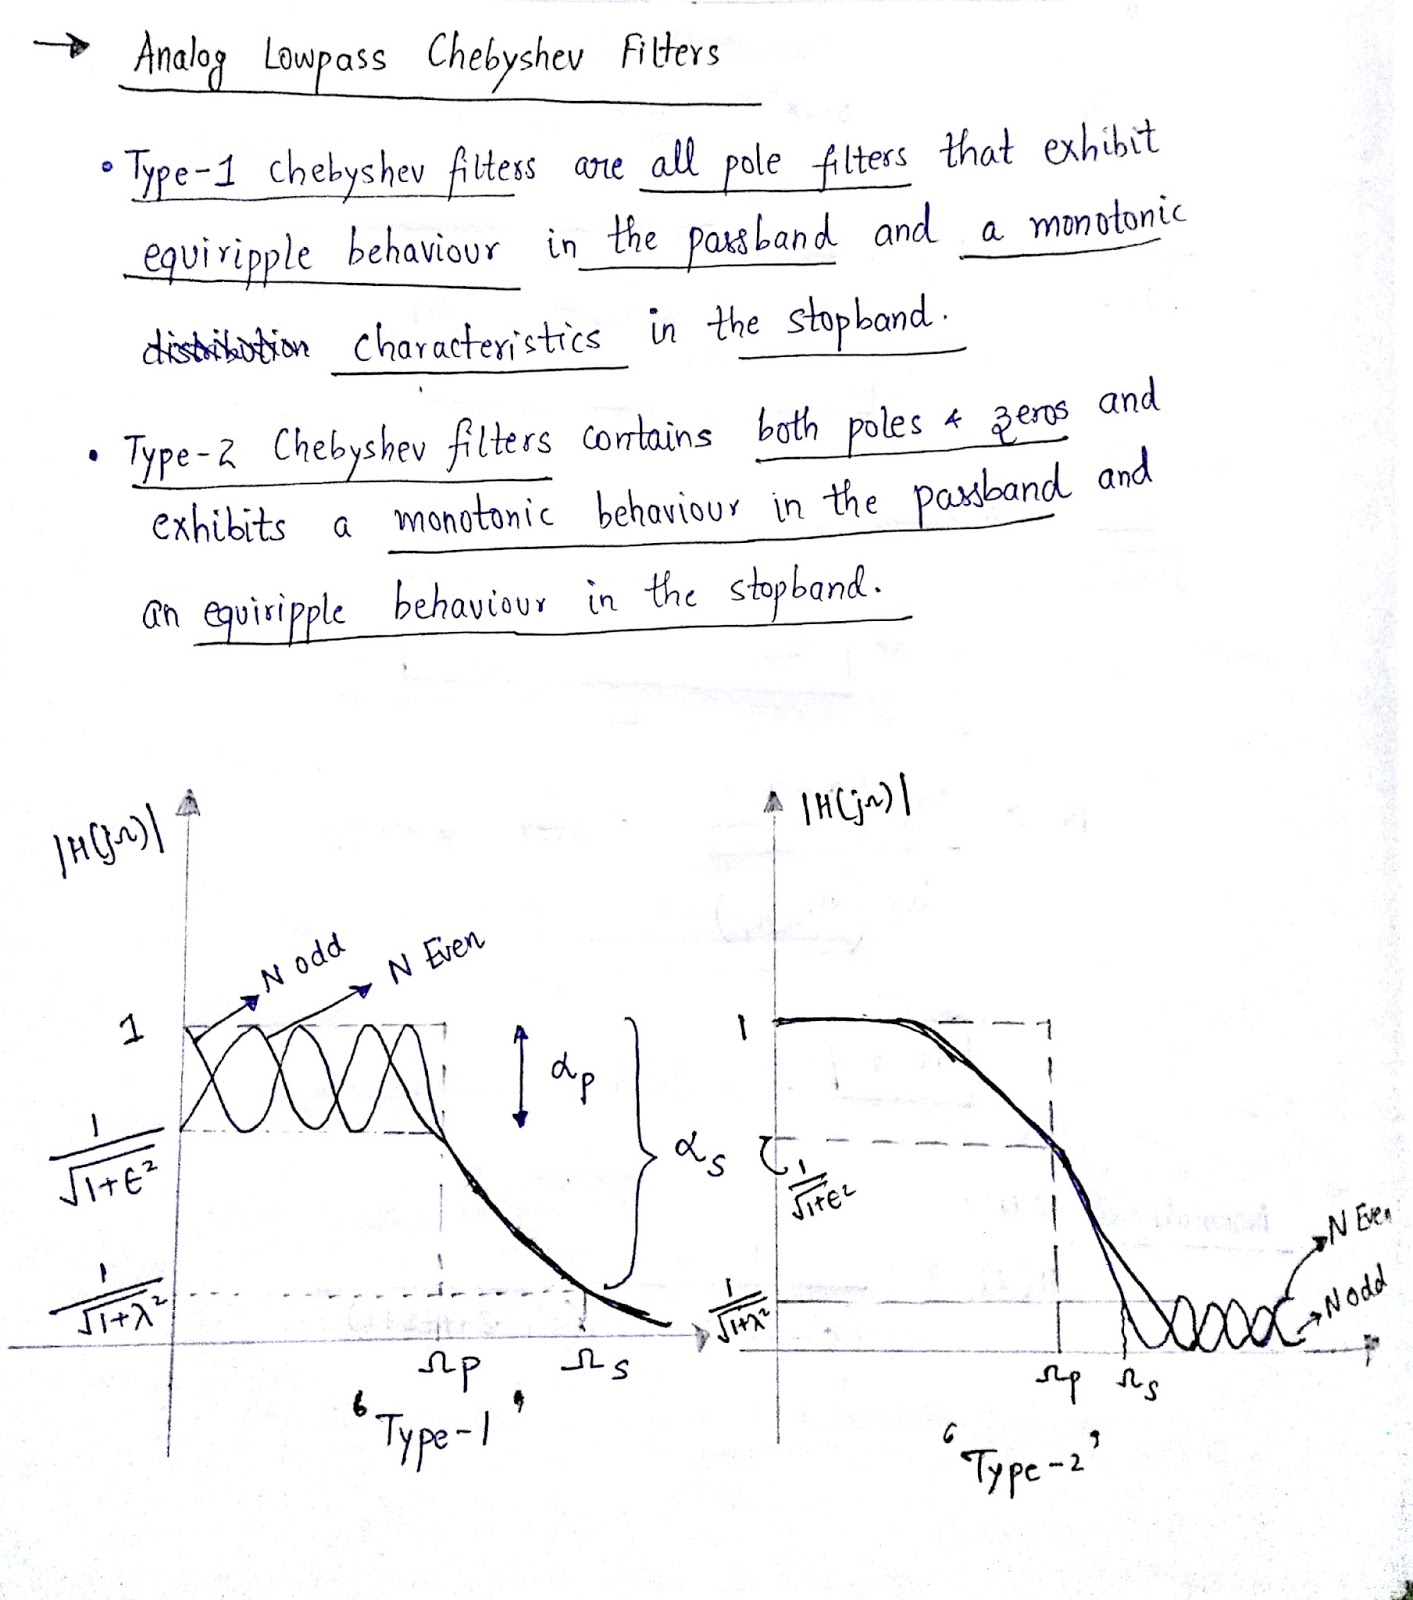 → Analog Lowpass Chebyshev Filters
• Type-1 chebyshev filters are all pole filters that exhibit
equiripple behaviour in the passband and a monotonic
distribution characteristics in the stopband.
• Type-2 Chebyshev filters contains both poles & zeros and
exhibits a monotonic behaviour in the passband and
an equiripple behaviour in the stopband.
|H(jΩ)|
N odd
N Even
1
αp
1/√1+ε²
αs
1/√1+λ²
Ωp
Ωs
'Type-1'
|H(jΩ)|
1
1/√1+ε²
N Even
1/√1+λ²
N odd
Ωp
Ωs
'Type-2'